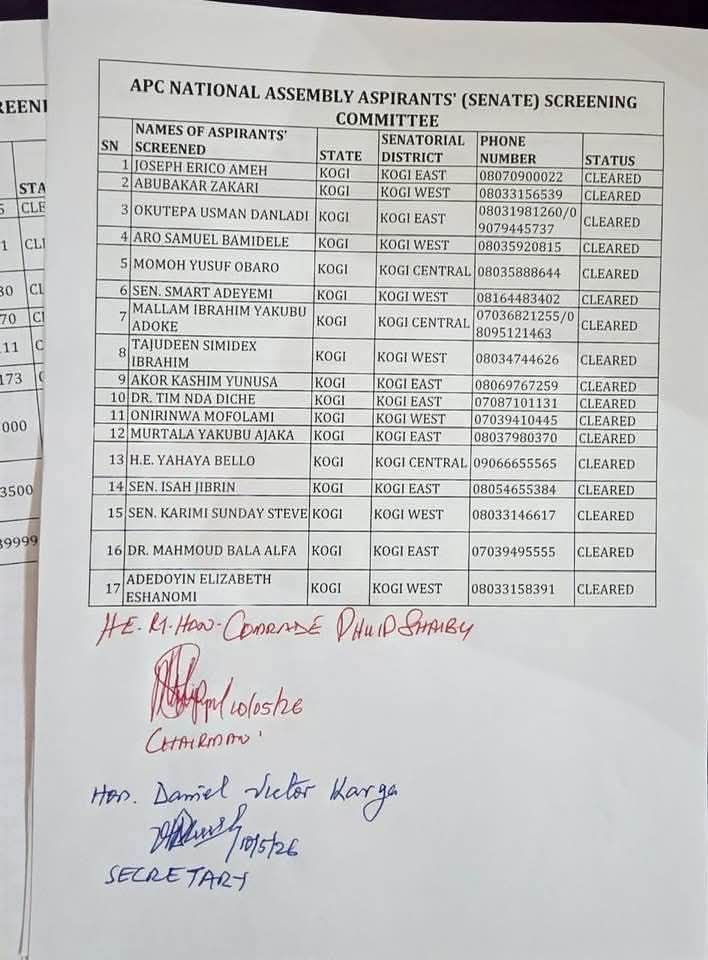 APC NATIONAL ASSEMBLY ASPIRANTS' (SENATE) SCREENING
COMMITTEE
SN NAMES OF ASPIRANTS' SCREENED STATE SENATORIAL DISTRICT PHONE NUMBER STATUS
1 JOSEPH ERICO AMEH KOGI KOGI EAST 08070900022 CLEARED
2 ABUBAKAR ZAKARI KOGI KOGI WEST 08033156539 CLEARED
3 OKUTEPA USMAN DANLADI KOGI KOGI EAST 08031981260/09079445737 CLEARED
4 ARO SAMUEL BAMIDELE KOGI KOGI WEST 08035920815 CLEARED
5 MOMOH YUSUF OBARO KOGI KOGI CENTRAL 08035888644 CLEARED
6 SEN. SMART ADEYEMI KOGI KOGI WEST 08164483402 CLEARED
7 MALLAM IBRAHIM YAKUBU ADOKE KOGI KOGI CENTRAL 07036821255/08095121463 CLEARED
8 TAJUDEEN SIMIDEX IBRAHIM KOGI KOGI WEST 08034744626 CLEARED
9 AKOR KASHIM YUNUSA KOGI KOGI EAST 08069767259 CLEARED
10 DR. TIM NDA DICHE KOGI KOGI EAST 07087101131 CLEARED
11 ONIRINWA MOFOLAMI KOGI KOGI WEST 07039410445 CLEARED
12 MURTALA YAKUBU AJAKA KOGI KOGI EAST 08037980370 CLEARED
13 H.E. YAHAYA BELLO KOGI KOGI CENTRAL 09066655565 CLEARED
14 SEN. ISAH JIBRIN KOGI KOGI EAST 08054655384 CLEARED
15 SEN. KARIMI SUNDAY STEVE KOGI KOGI WEST 08033146617 CLEARED
16 DR. MAHMOUD BALA ALFA KOGI KOGI EAST 07039495555 CLEARED
17 ADEDOYIN ELIZABETH ESHANOMI KOGI KOGI WEST 08033158391 CLEARED
HE. Rt. HON. COMRADE PHILIP SHAIBU
10/05/26
CHAIRMAN
Hon. Daniel Victor Karga
10/5/26
SECRETARY